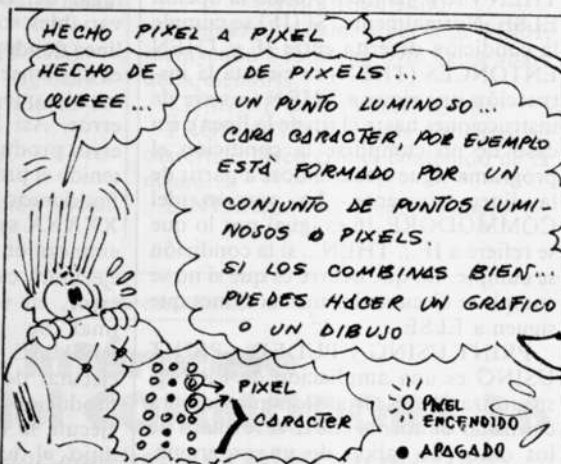 HECHO PIXEL A PIXEL
HECHO DE
QUEEE...
DE PIXELS...
UN PUNTO LUMINOSO.
CARA CARACTER, POR EJEMPLO
ESTÀ FORMADO POR UN
CONJUNTO DE PUNTOS LUMI-
NOSOS O PIXELS.
SI LOS COMBINAS BIEN...
PUEDES HACER UN GRAFICO
O UN DIBUJO
PIXEL
CARACTER
PIXEL
ENCENDIDO
APAGADO